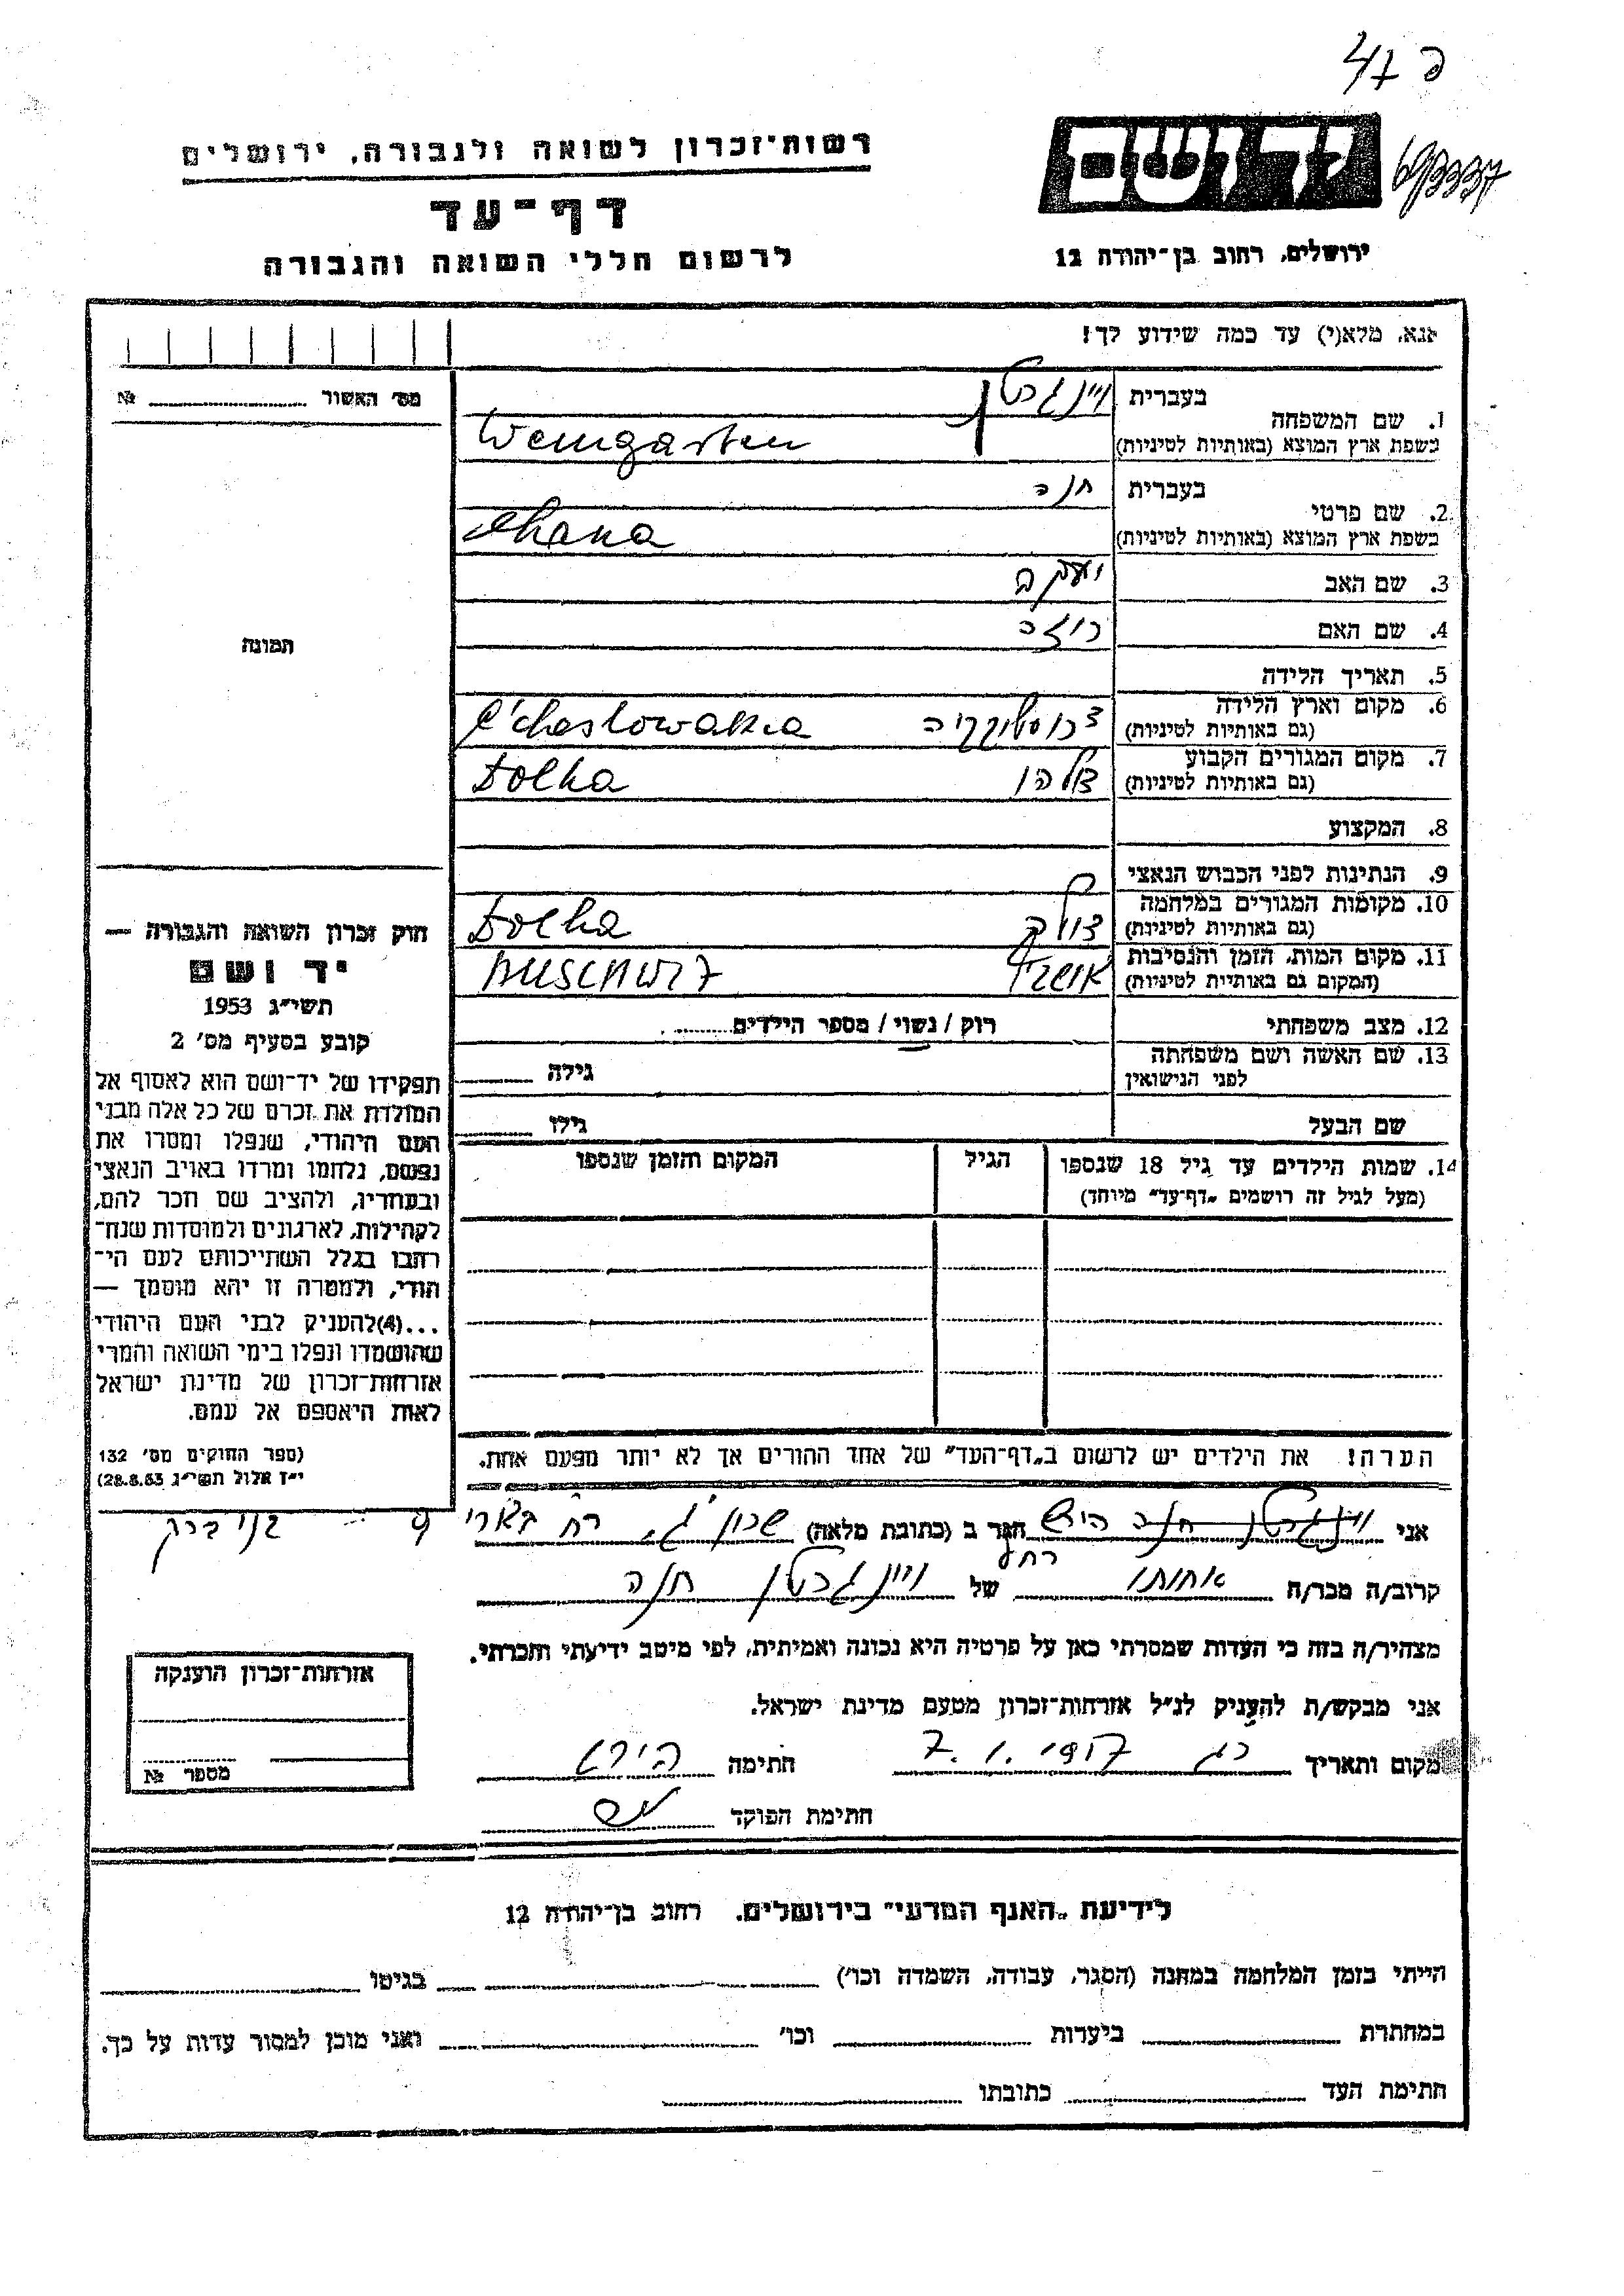 רשות־זכרון לשואה ולגבורה, ירושלים
דף־עד
לרשום חללי השואה והגבורה
יד ושם
ירושלים, רחוב בן־יהודה 12
אנא, מלא(י) עד כמה שידוע לך!
מס׳ האשור № 
1. שם המשפחה
בעברית ויינגרטן
בשפת ארץ המוצא (באותיות לטיניות) Weingarten
2. שם פרטי
בעברית חנה
בשפת ארץ המוצא (באותיות לטיניות) Chana
3. שם האב יעקב
4. שם האם רוזה
5. תאריך הלידה
6. מקום וארץ הלידה
(גם באותיות לטיניות)
C'choslowakia
7. מקום המגורים הקבוע
(גם באותיות לטיניות)
Dolha
8. המקצוע
9. הנתינות לפני הכבוש הנאצי
10. מקומות המגורים במלחמה
(גם באותיות לטיניות)
Dolha
11. מקום המות, הזמן והנסיבות
(המקום גם באותיות לטיניות)
AUSCHWITZ
12. מצב משפחתי רוק / נשוי / מספר הילדים
13. שם האשה ושם משפחתה
לפני הנישואין
גילה
שם הבעל גילו
14. שמות הילדים עד גיל 18 שנספו הגיל המקום והזמן שנספו
(מעל לגיל זה רושמים „דף־עד״ מיוחד)
הערה! את הילדים יש לרשום ב„דף־העד״ של אחד ההורים אך לא יותר מפעם אחת.
תמונה
חוק זכרון השואה והגבורה —
יד ושם
תשי״ג 1953
קובע בסעיף מס׳ 2
תפקידו של יד־ושם הוא לאסוף אל
המולדת את זכרם של כל אלה מבני
העם היהודי, שנפלו ומסרו את
נפשם, נלחמו ומרדו באויב הנאצי
ובעוזריו, ולהציב שם וזכר להם,
לקהילות, לארגונים ולמוסדות שנח־
רבו בגלל השתייכותם לעם הי־
הודי, ולמטרה זו יהא מוסמך —
...(4)להעניק לבני העם היהודי
שהושמדו ונפלו בימי השואה והמרי
אזרחות־זכרון של מדינת ישראל
לאות היאספם אל עמם.
(ספר החוקים מס׳ 132
י״ז אלול תשי״ג 28.8.53)
אני ויינגרטן חנה הירש הגר ב (כתובת מלאה) שכון ג׳, בני ברק
רחל
קרוב/ה מכר/ה אחותו של ויינגרטן חנה
מצהיר/ה בזה כי העדות שמסרתי כאן על פרטיה היא נכונה ואמיתית, לפי מיטב ידיעתי והכרתי.
אני מבקש/ת להעניק לנ״ל אזרחות־זכרון מטעם מדינת ישראל.
מקום ותאריך 7.1.1957 חתימה
חתימת הפוקד
אזרחות־זכרון הוענקה
מספר №
לידיעת „האנף המדעי״ בירושלים, רחוב בן־יהודה 12
הייתי בזמן המלחמה במחנה (הסגר, עבודה, השמדה וכו׳) בגיטו
במחתרת ביערות וכו׳ ואני מוכן למסור עדות על כך.
חתימת העד כתובתו